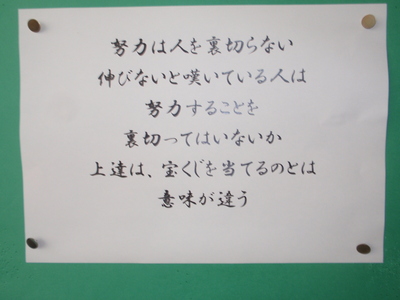 努力は人を裏切らない
伸びないと嘆いている人は
努力することを
裏切ってはいないか
上達は、宝くじを当てるのとは
意味が違う